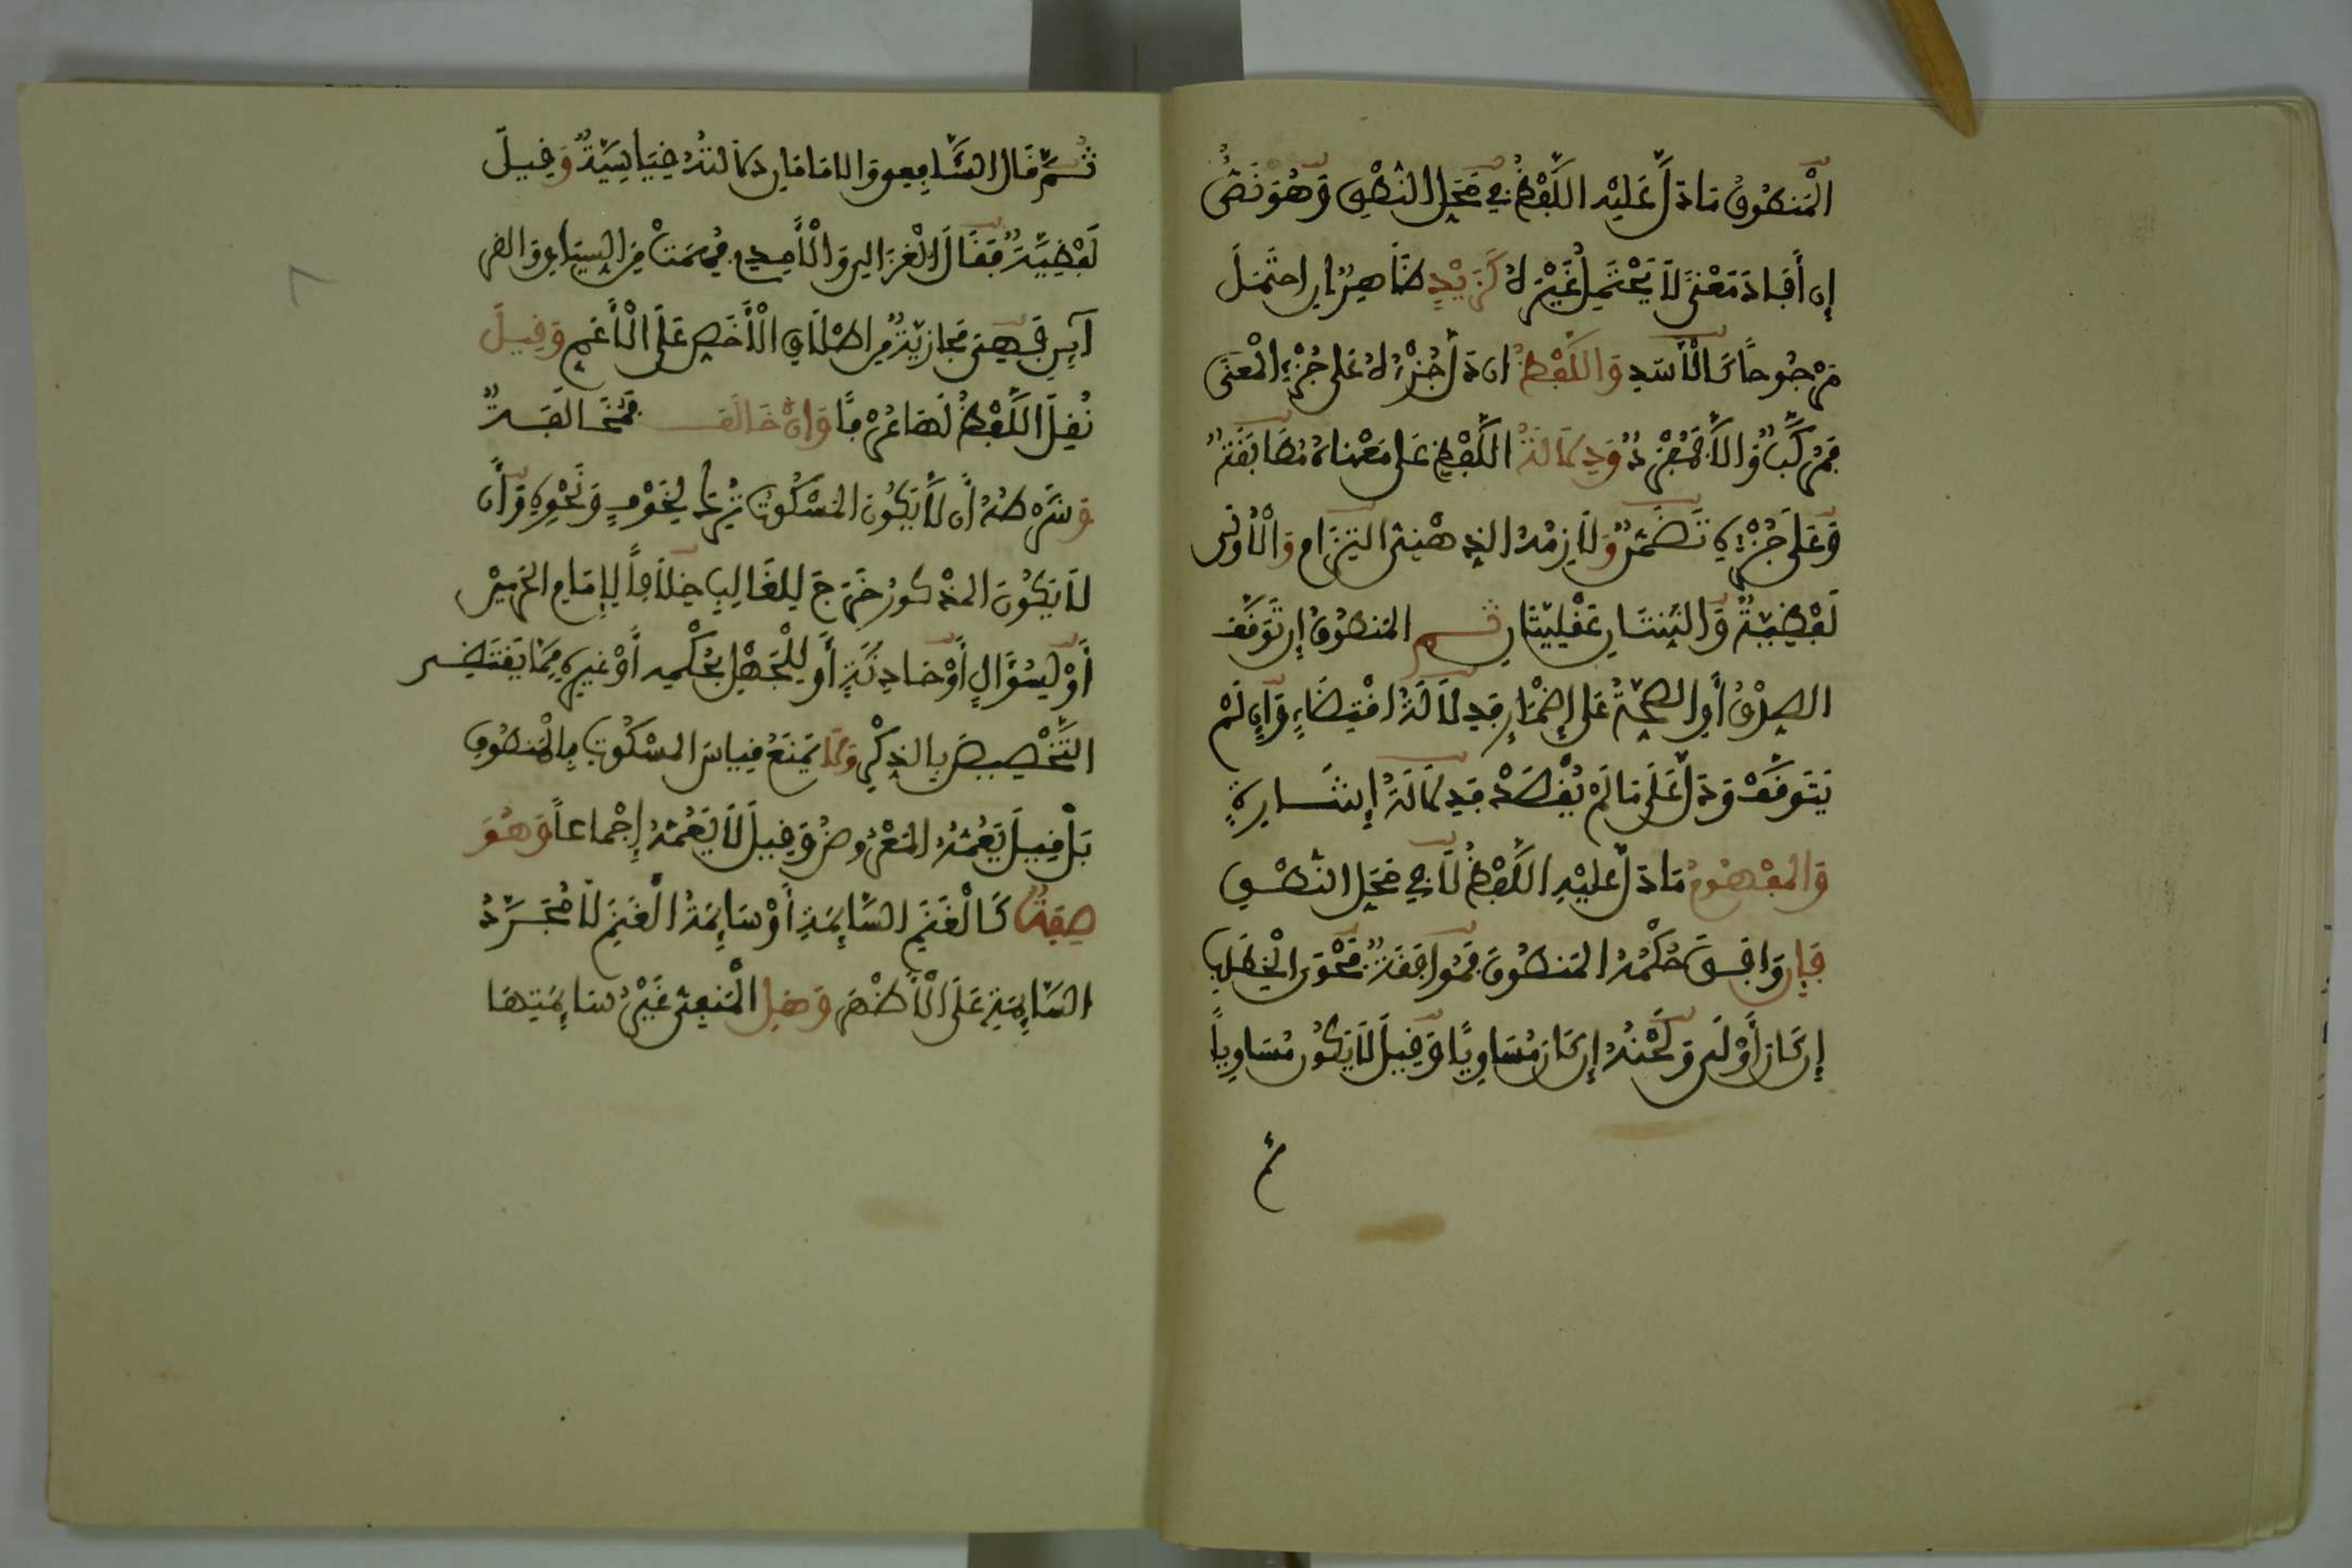 الْمَنطُوقُ مَا دَلَّ عَلَيْهِ اللَّفْظُ فِي مَحَلِّ النُّطْقِ وَهُوَ نَصٌّ
إِن أَفَادَ مَعْنًى لَا يَحْتَمِلُ غَيْرَهُ كَزَيْدٍ ظَاهِرٌ إِن احْتَمَلَ
مَرْجُوحاً كَالْأَسَدِ وَاللَّفْظُ ان دَلَّ جُزْؤُهُ عَلَى جُزْءِ الْمَعْنَى
فَمُرَكَّبٌ وَإِلَّا فَمُفْرَدٌ وَدِلَالَةُ اللَّفْظِ عَلَى مَعْنَاهُ مُطَابَقَةٌ
وَعَلَى جُزْئِهِ تَضَمُّنٌ وَلَازِمِهِ الذِهْنِيِّ التِزَام وَالْأُولَى
لَفْظِيَّةٌ وَالثِّنْتَانِ عَقْلِيَّتَانِ ثم الْمَنطُوقُ إِن تَوَقَّفَ
الصِدْقُ أَوِ الصِّحَّةُ عَلَى إِضْمَارٍ فَدِلَالَةُ اقْتِضَاءٍ وَإِن لَمْ
يَتَوَقَّفْ وَدَلَّ عَلَى مَا لَمْ يُقْصَدْ فَدِلَالَةُ إِشَارَةٍ
وَالْمَفْهُومُ مَا دَلَّ عَلَيْهِ اللَّفْظُ لَا فِي مَحَلِّ النُّطْقِ
فَإِن وَافَقَ حُكْمُهُ الْمَنطُوقَ فَمُوَافَقَةٌ فَحْوَى الْخِطَابِ
إِن كَانَ أَوْلَى وَلَحْنُهُ إِن كَانَ مُسَاوِيًا وَقِيلَ لَا يَكُونُ مُسَاوِياً
ثم
ثُمَّ قَالَ الشَّافِعِي وَالإِمَامَانِ دَلَالَتُهُ قِيَاسِيَّةٌ وَقِيلَ
لَفْظِيَّةٌ فَقَالَ الْغَزَالِي وَالْآمِدِي فُهِمَتْ مِنَ السِّيَاقِ وَالقر
آئِنِ فَهِيَ مَجَازِيَّةٌ مِن اطْلَاقِ الْأَخَصِّ عَلَى الْأَعَمِّ وَقِيلَ
نُقِلَ اللَّفْظُ لَهَا عُرْفًا وَإِنْ خَالَفَ فَمُخَالَفَةٌ
وَشَرْطُهُ أَن لَّا يَكُونَ الْمَسْكُوتُ تُرِكَ لِخَوْفٍ وَنَحْوِهِ وَأَن
لَا يَكُونَ الْمَذْكُورُ خَرَجَ لِلْغَالِبِ خِلَافاً لِإِمَامِ الْحَرَمَيْنِ
أَوْ لِسُؤَالٍ أَوْ حَادِثَةٍ أَو لِلْجَهْلِ بِحُكْمِهِ أَوْ غَيْرِهِ مِمَّا يَقْتَضِي
التَّخْصِيصَ بِالذِكْرِ وَلَا يَمْنَعُ قِيَاسَ الْمَسْكُوتِ بِالْمَنطُوقِ
بَلْ قِيلَ يَعُمُّهُ الْمَعْرُوضُ وَقِيلَ لَا يَعُمُّهُ إِجْمَاعاً وَهُوَ
صِفَةٌ كَالْغَنَمِ السَّائِمَةِ أَوْ سَائِمَةُ الْغَنَمِ لَا مُجَرَّدُ
السَّائِمَةِ عَلَى الْأَظْهَرِ وَهَلِ الْمَنفِيُّ غَيْرُ سَائِمَتِهَا